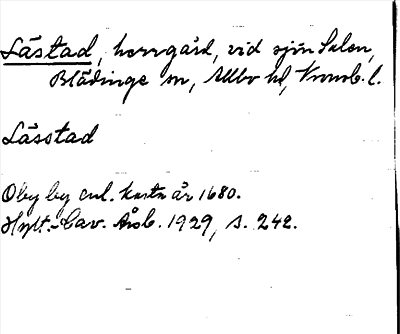 Låstad, herrgård, vid sjön Salen,
Blädinge sn, Allbo hd, Kronob. l.
Låsstad
Oby by enl. karta år 1680.
Hylt.-Cav. Årsb. 1929, s. 242.